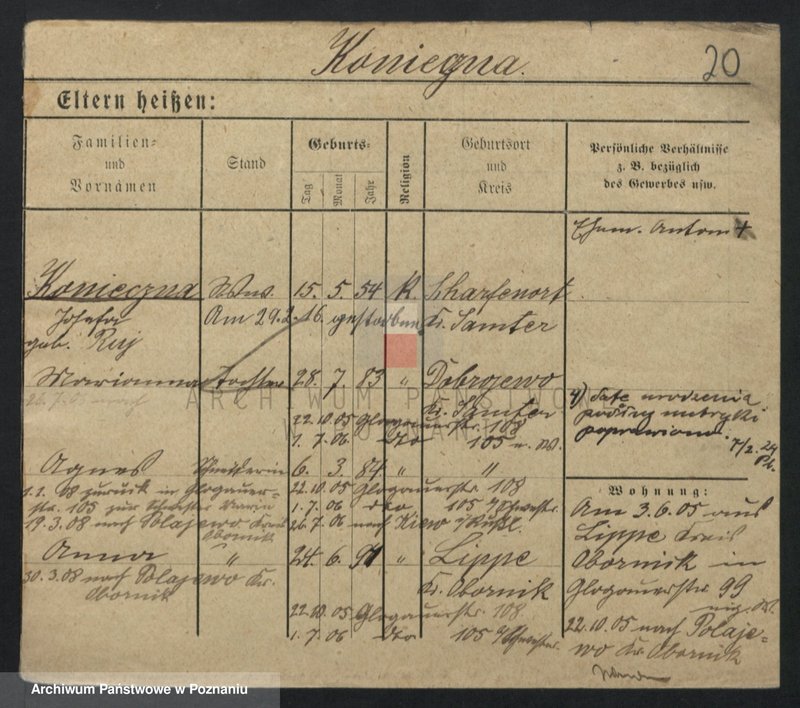 Konieczna.
20
Eltern heißen:
Familien-
und
Vornamen
Stand
Geburts-
Tag
Monat
Jahr
Religion
Geburtsort
und
Kreis
Persönliche Verhältnisse
z. B. bezüglich
des Gewerbes usw.
Ehem. Anton +
Konieczna Wwe. 15. 5. 54 K. Scharfenort
Josefa Am 29.2.16. gestorben Kr. Samter
geb. Ruj
Marianna Tochter 28. 7. 83 " Dobrojewo
Kr. Samter
22.10.05 Glogauerstr. 108
1. 7. 06 dto 105
4) Datę urodzenia
podług metryki
poprawiono.
7/2. 24
Agnes 6. 3. 84 " "
1.2.08 zurück in Glogauer-
str. 105 zur Schwester Maria
19.3.08 nach Polajewo Kreis
Obornik
22.10.05 Glogauerstr. 108
1.7.06 dto 105
26.7.06 nach Kiew
Anna " 24. 6. 91 " Lippe
Kr. Obornik
30.3.08 nach Polajewo Kr.
Obornik
22.10.05 Glogauerstr. 108
1.7.06 dto 105
Wohnung:
Am 3.6.05 aus
Lippe Kreis
Obornik in
Glogauerstr 99
22.10.05 nach Polaje-
wo Kr. Obornik
ARCHIWUM PAŃSTWOWE
W POZNANIU
Archiwum Państwowe w Poznaniu